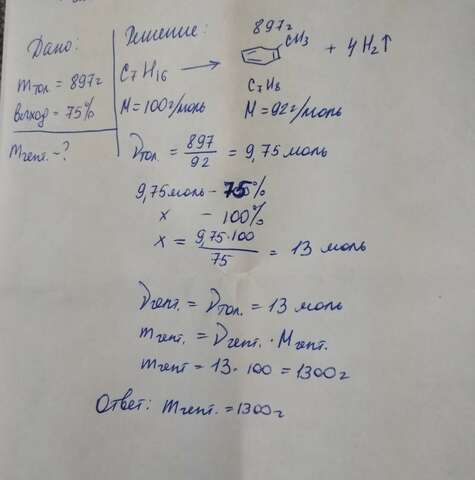 Дано:
mтол. = 897г
выход = 75%
mгепт. – ?
Решение:
897г
C7H16 → CH3 + 4H2↑
C7H8
M = 100г/моль M = 92г/моль
νтол. = 897/92 = 9,75 моль
9,75 моль – 75%
x – 100%
x = 9,75·100/75 = 13 моль
νгепт. = νтол. = 13 моль
mгепт. = νгепт. · Mгепт.
mгепт = 13 · 100 = 1300г
Ответ: mгепт. = 1300г